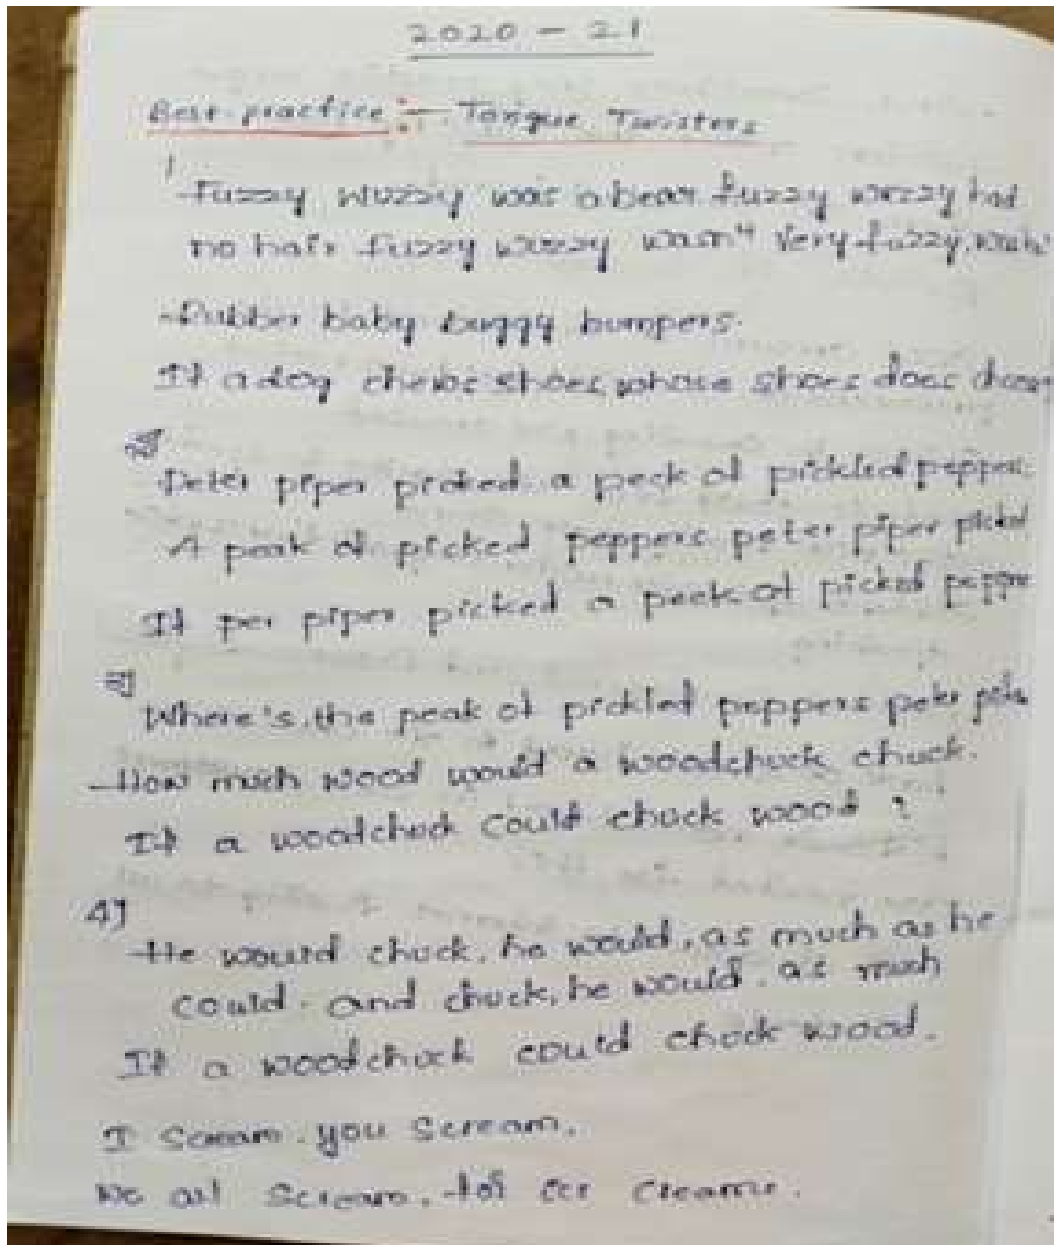 2020 - 21
Best practice :- Tongue Twisters
1 Fuzzy wuzzy was a bear fuzzy wuzzy had
no hair fuzzy wuzzy wasn't very fuzzy,
Rubber baby buggy bumpers.
If a dog chews shoes, whose shoes does
Peter piper picked a peck of pickled pepper
A peak of picked peppers peter piper
If per piper picked a peck of picked
3] Where's the peak of pickled peppers peter
How much wood would a woodchuck chuck.
If a woodchuck could chuck wood ?
4]
He would chuck, he would, as much as he
could. and chuck, he would. as much
If a woodchuck could chuck wood.
I scream. you scream.
we all scream. for ice creame.